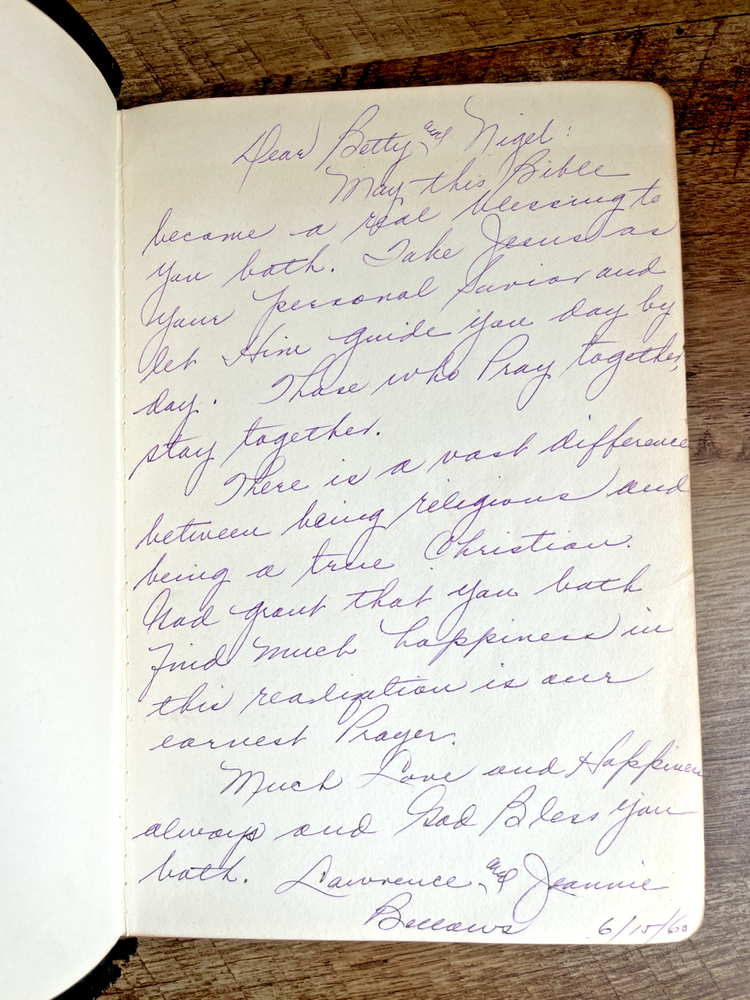 Dear Betty and Nigel:
May this Bible
become a real blessing to
you both. Take Jesus as
your personal Savior and
let Him guide you day by
day. Those who Pray together,
stay together.
There is a vast difference
between being religious and
being a true Christian.
God grant that you both
find much happiness in
this realization is our
earnest Prayer.
Much Love and Happiness
always and God Bless you
both. Lawrence and Jeannie
Bellows 6/15/60